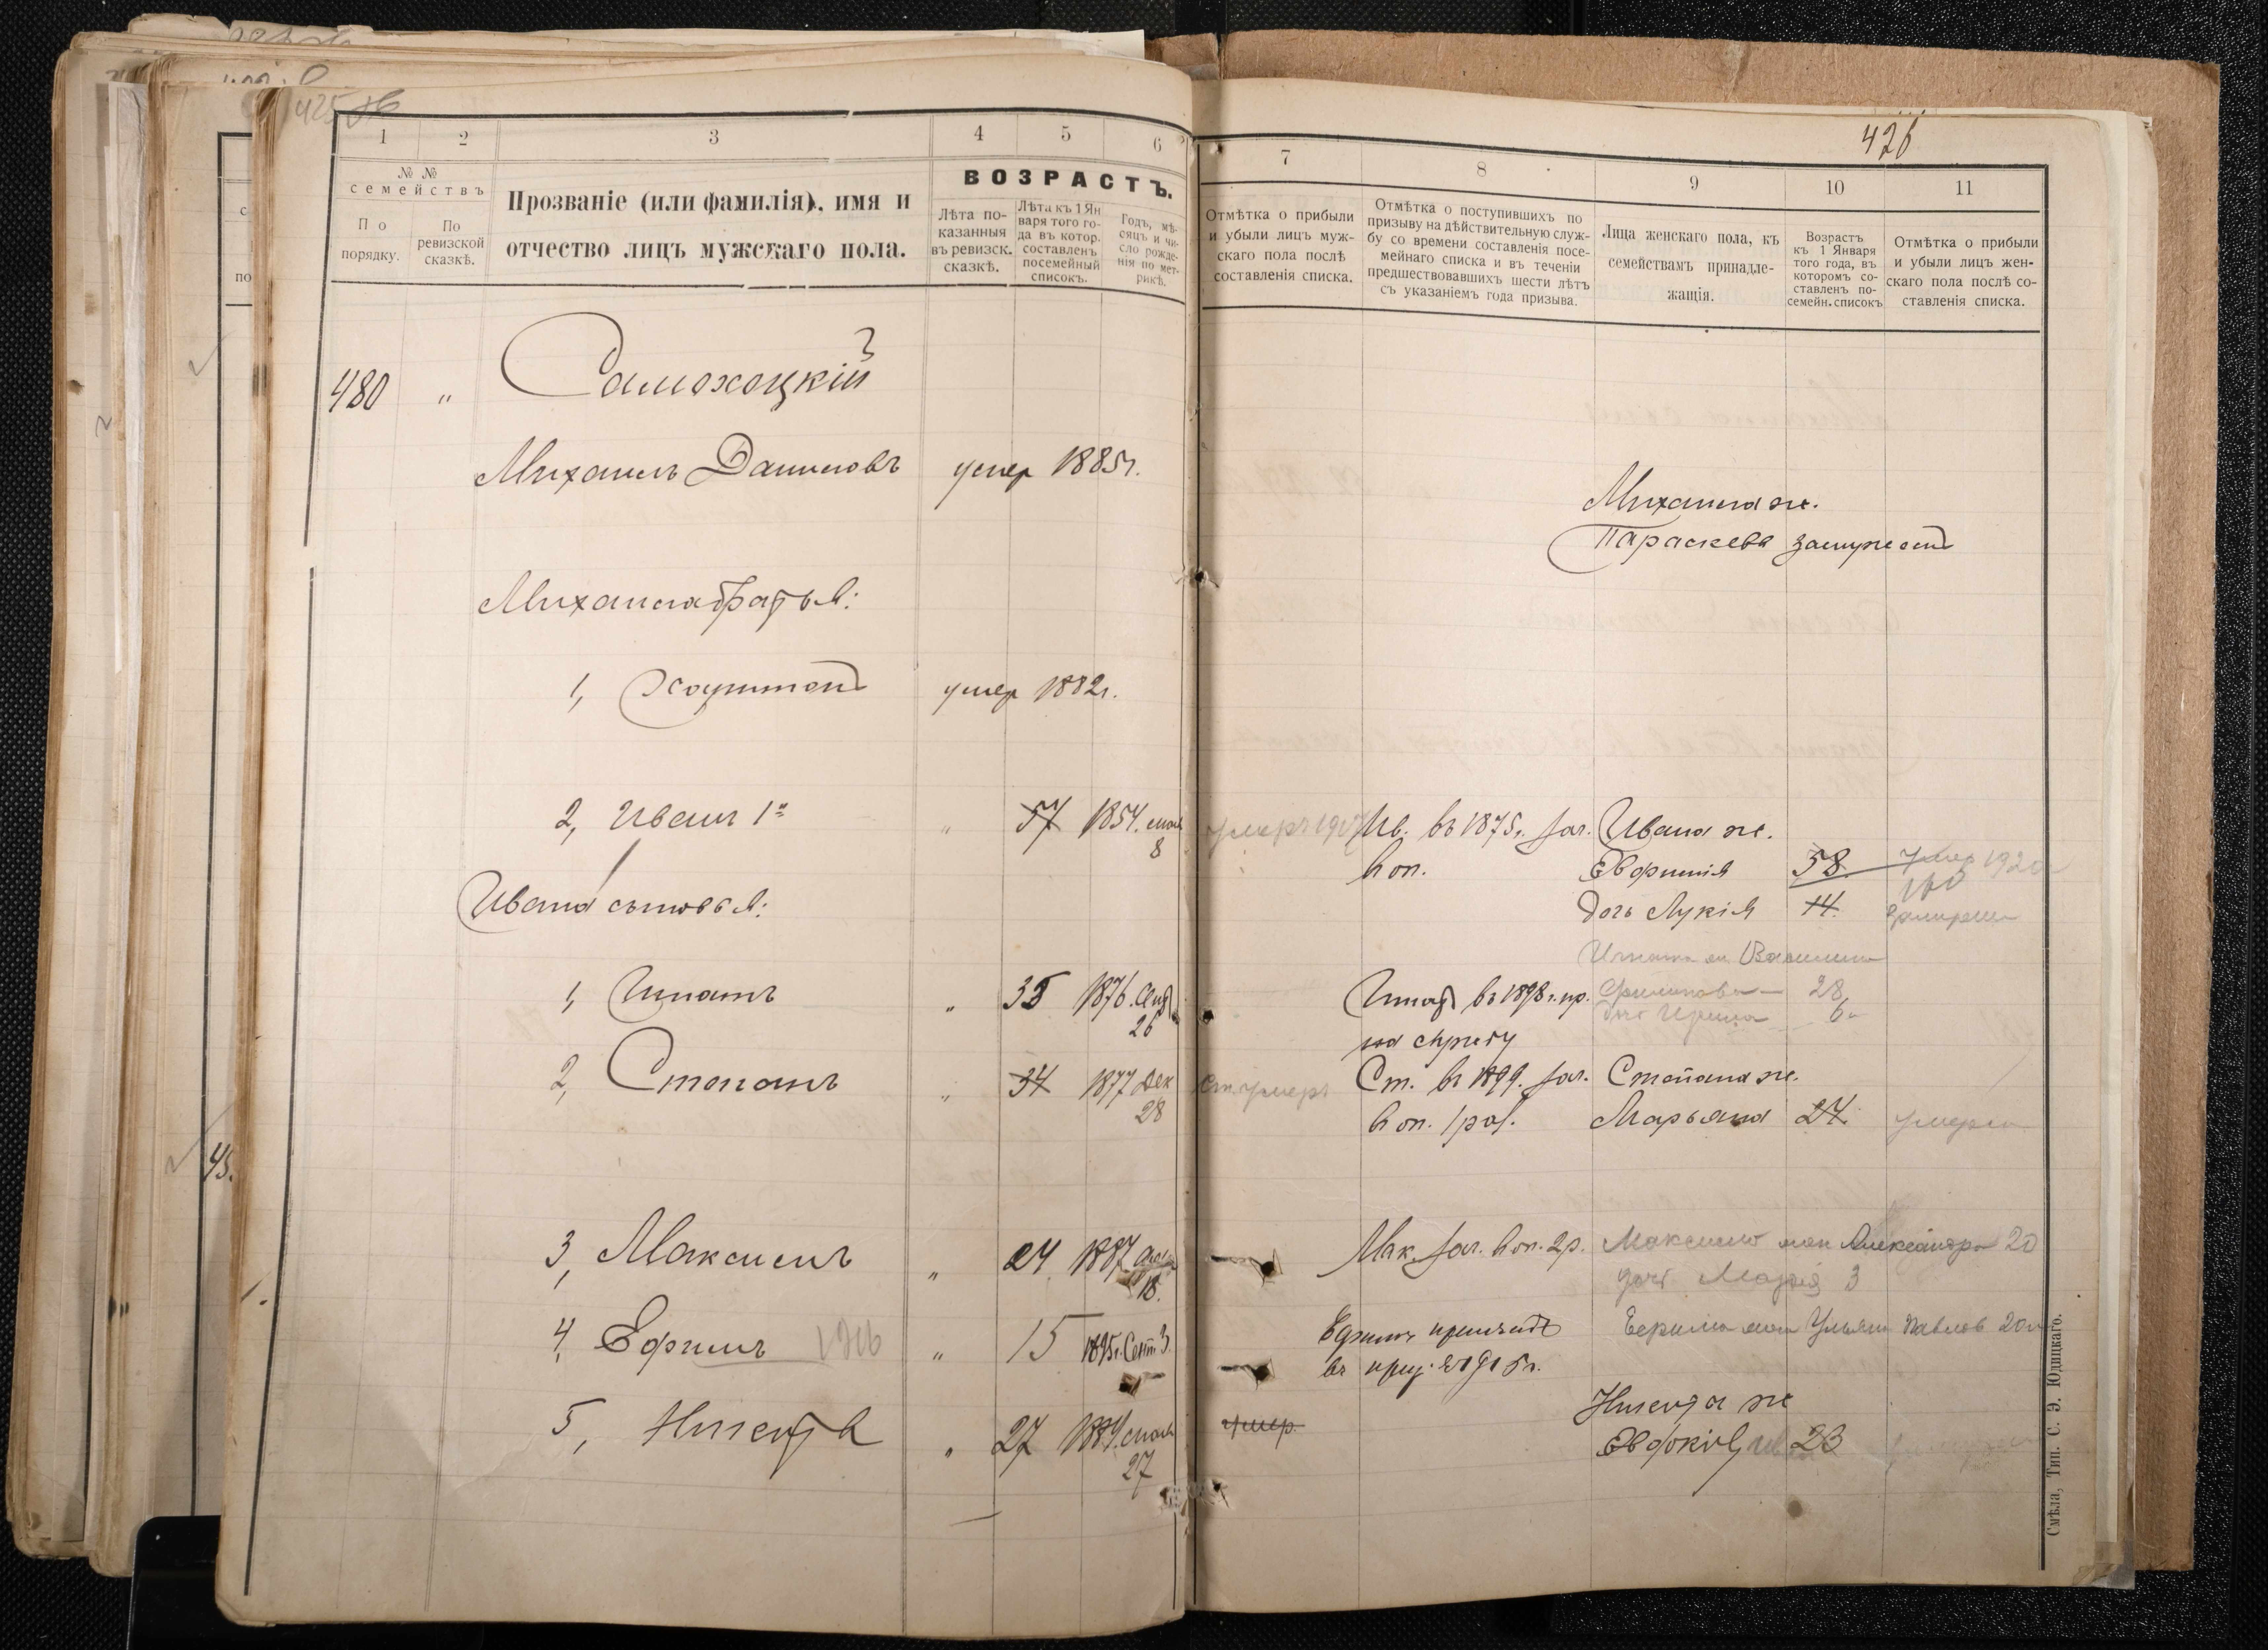 425 об
426
1 2 3 4 5 6
7 8 9 10 11
№ №
семействъ
По
порядку.
По
ревизской
сказкѣ.
Прозваніе (или фамилія), имя и
отчество лицъ мужскаго пола.
ВОЗРАСТЪ.
Лѣта по-
казанныя
въ ревизск.
сказкѣ.
Лѣта къ 1 Ян
варя того го-
да въ котор.
составленъ
посемейный
списокъ.
Годъ, мѣ-
сяцъ и чи-
сло рожде-
нія по мет-
рикѣ.
Отмѣтка о прибыли
и убыли лицъ муж-
скаго пола послѣ
составленія списка.
Отмѣтка о поступившихъ по
призыву на дѣйствительную служ-
бу со времени составленія посе-
мейнаго списка и въ теченіи
предшествовавшихъ шести лѣтъ
съ указаніемъ года призыва.
Лица женскаго пола, къ
семействамъ принадле-
жащія.
Возрастъ
къ 1 Января
того года, въ
которомъ со-
ставленъ по-
семейн. списокъ
Отмѣтка о прибыли
и убыли лицъ жен-
скаго пола послѣ со-
ставленія списка.
480 " Самохоцкій
Михаилъ Даниловъ умер 1885г.
Михаила ж.
Параскева замужест
Михаила братья:
1, Харитон умер 1882г.
2, Иванъ 1й " 57 1854. мая 8 умеръ Ив. въ 1875г. зач. Ивана ж.
в оп. Евфимія 58 умер 1920
Ивана сыновья: дочь Лукія 14
Игната ж Василина
1, Игнатъ " 35 1876. Сент 26 Игнат въ 1898г. пр. Филипова 28
дочь Ирина 6
на службу
2, Степанъ " 34 1877 Дек 28 Ст. умеръ Ст. въ 1899. зач. Степана ж.
в оп. 1 раз. Марьяна 24 умерла
3, Максимъ " 24 1887 18. Мак. зач. в оп. 2 р. Максима жен Александра 20
дочь Марія 3
4, Ефимъ " 15 1895г. Сент 3. Ефимъ принятъ Ефима жен Ульян Павлов 20
въ 1915г.
5, Никита " 27 1884. мая 27 умер. Никита ж
Евдокія 23
Смѣла, Тип. С. Э. Юдицкаго.